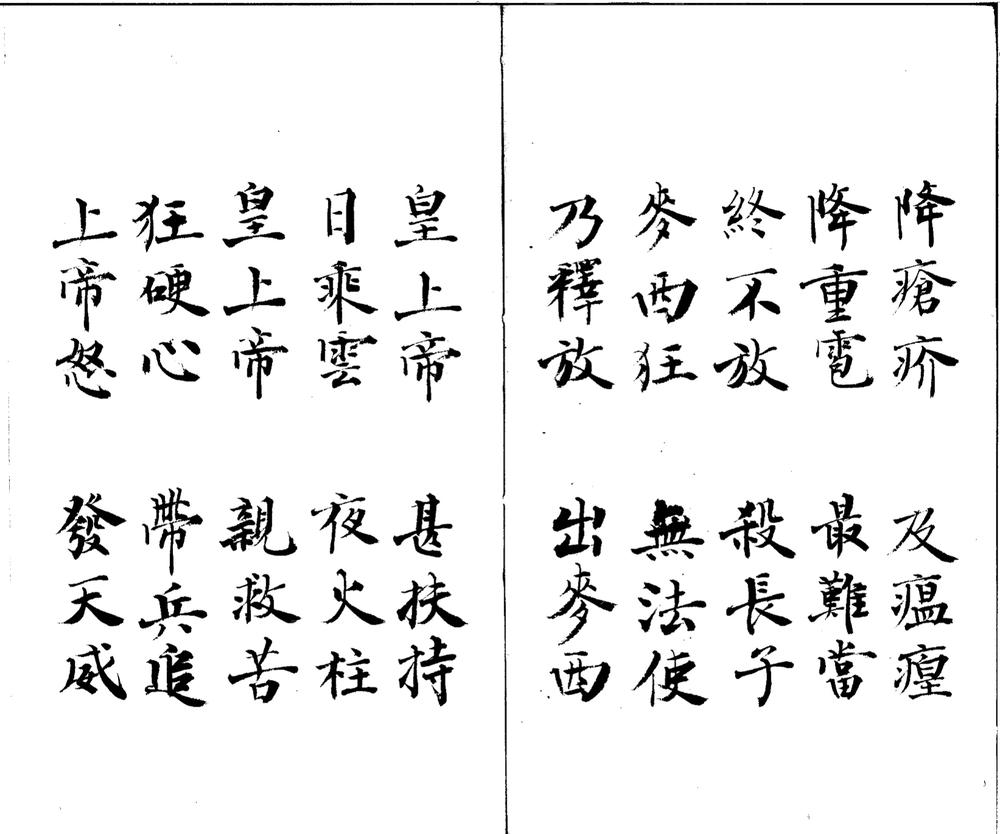 降瘡疥 及瘟瘴
降重雹 最難當
終不放 殺長子
麥西狂 無法使
乃釋放 出麥西
皇上帝 甚扶持
日乘雲 夜火柱
皇上帝 親救苦
狂硬心 帶兵追
上帝怒 發天威